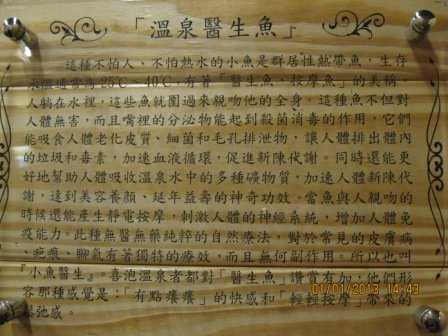 「溫泉醫生魚」
這種不怕人、不怕熱水的小魚是群居性熱帶魚,生存
水溫通常為25℃~40℃,有著「醫生魚、按摩魚」的美稱。
人躺在水裡,這些魚就圍過來親吻他的全身。這種魚不但對
人體無害,而且嘴裡的分泌物能起到殺菌消毒的作用,它們
能吸食人體老化皮質、細菌和毛孔排泄物,讓人體排出體內
的垃圾和毒素,加速血液循環,促進新陳代謝。同時還能更
好地幫助人體吸收溫泉水中的多種礦物質,加速人體新陳代
謝,達到美容養顏、延年益壽的神奇功效。當魚與人親吻的
時候還能產生靜電按摩,刺激人體的神經系統,增加人體免
疫能力。此種無醫無藥純粹的自然療法,對於常見的皮膚病
、疤痕、腳氣有著獨特的療效,而且無何副作用。所以也叫
『小魚醫生』。喜泡溫泉者都對「醫生魚」讚賞有加,他們形
容那種感覺是:「有點癢癢」的快感和「輕輕按摩」帶來的
鬆弛感。
01/01/2013 14:43